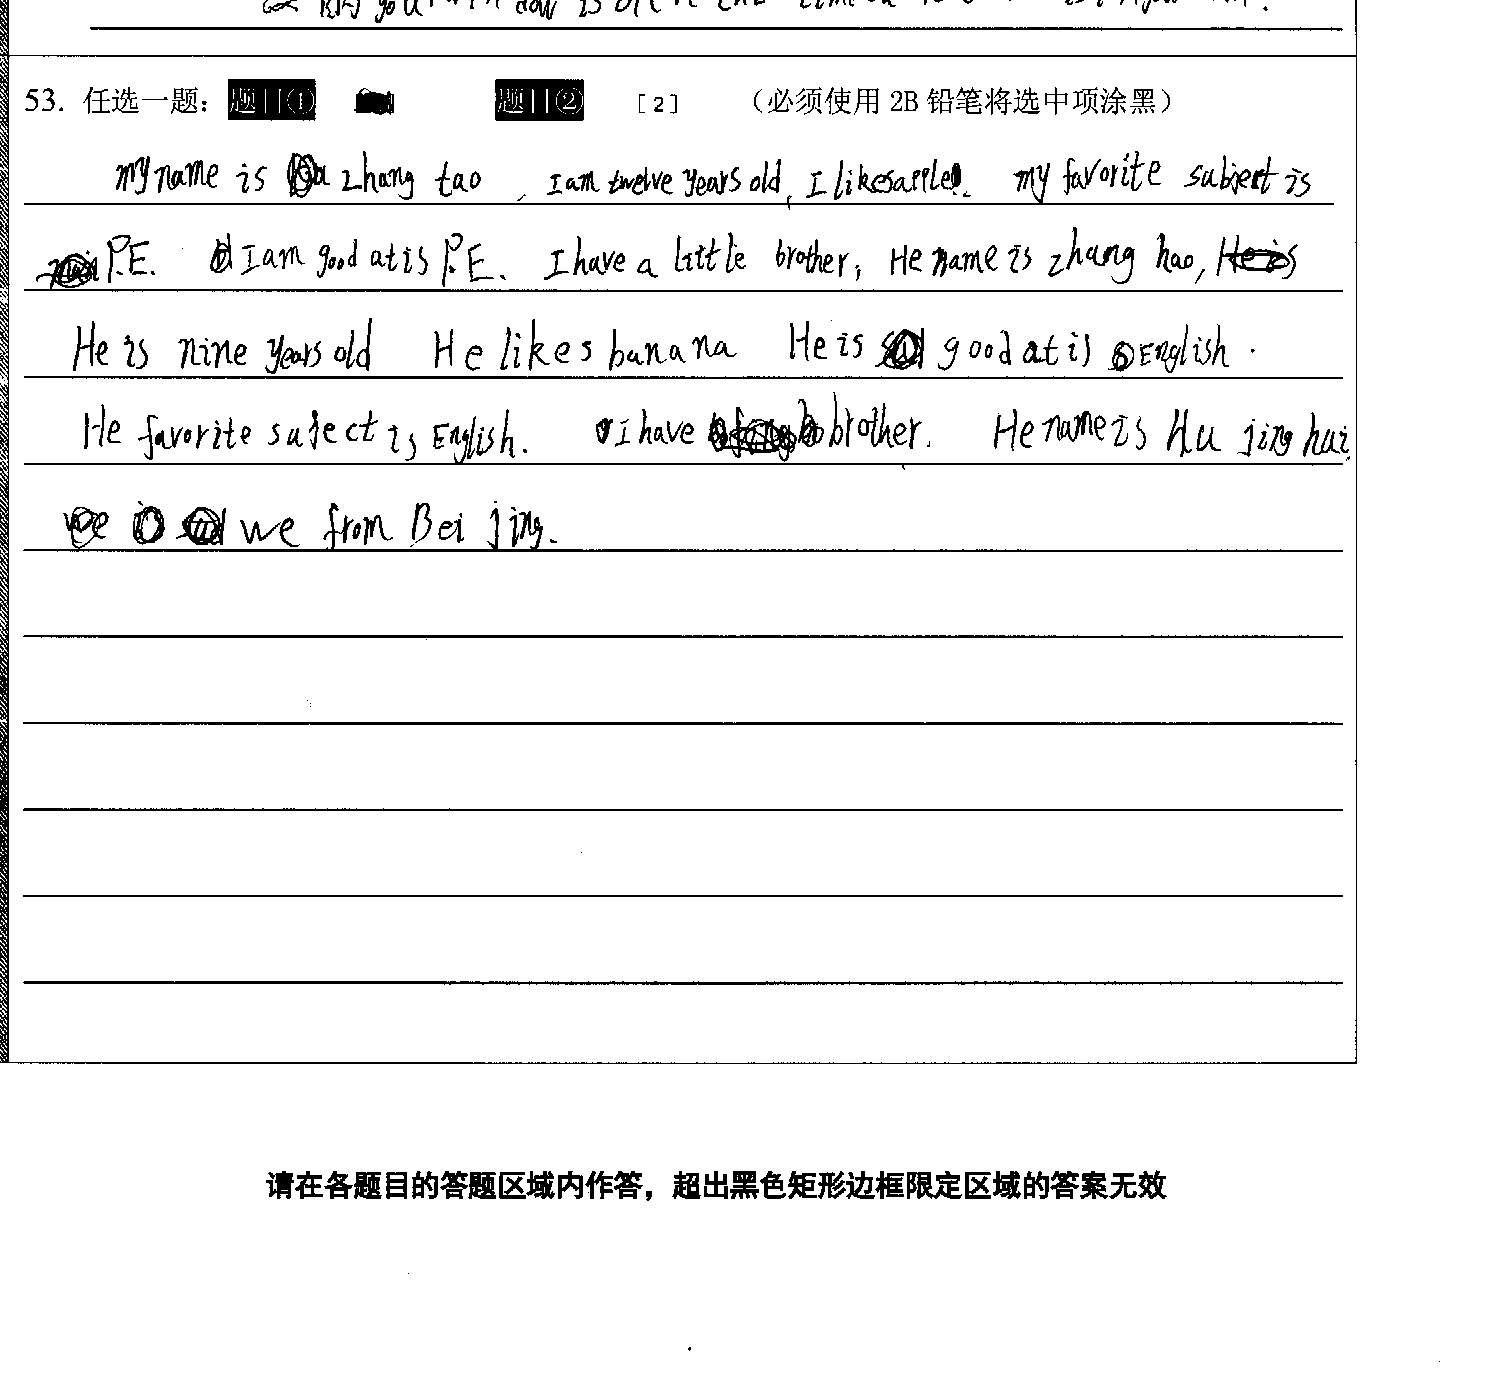 53. 任选一题： 题目① 题目② [2] （必须使用 2B 铅笔将选中项涂黑）
my name is zhang tao , I am twelve years old, I likesapple. my favorite subject is
P.E. I am good at is P.E. I have a little brother, He name is zhang hao,
He is nine years old He likes banana He is good at is English.
He favorite suject is English. I have brother. He name is Hu jing hui.
we from Bei jing.
请在各题目的答题区域内作答，超出黑色矩形边框限定区域的答案无效